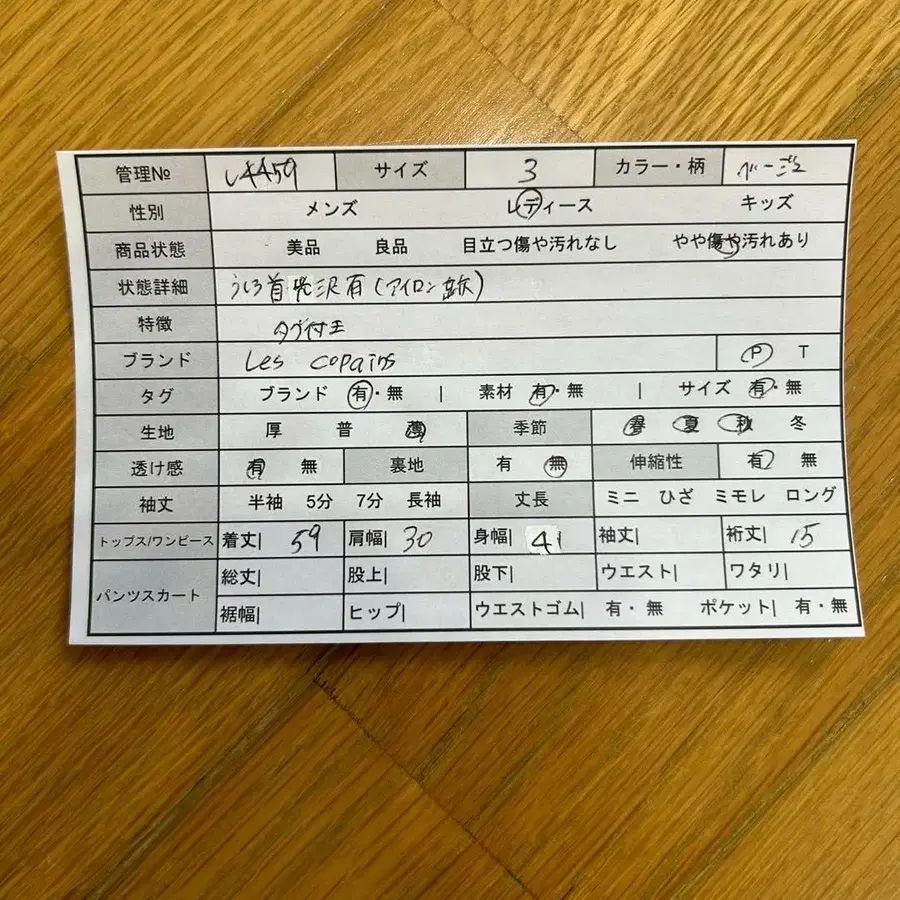 管理№ サイズ 3 カラー・柄 ベージュ
性別 メンズ レディース キッズ
商品状態 美品 良品 目立つ傷や汚れなし やや傷や汚れあり
状態詳細 うしろ首光沢有(アイロン
特徴 タグ付王
ブランド Les copains P T
タグ ブランド 有・無 | 素材 有・無 | サイズ 有・無
生地 厚 普 薄 季節 春 夏 秋 冬
透け感 有 無 裏地 有 無 伸縮性 有 無
袖丈 半袖 5分 7分 長袖 丈長 ミニ ひざ ミモレ ロング
トップス/ワンピース 着丈| 59 肩幅| 30 身幅| 41 袖丈| 裄丈| 15
パンツスカート 総丈| 股上| 股下| ウエスト| ワタリ|
裾幅| ヒップ| ウエストゴム| 有・無 ポケット| 有・無